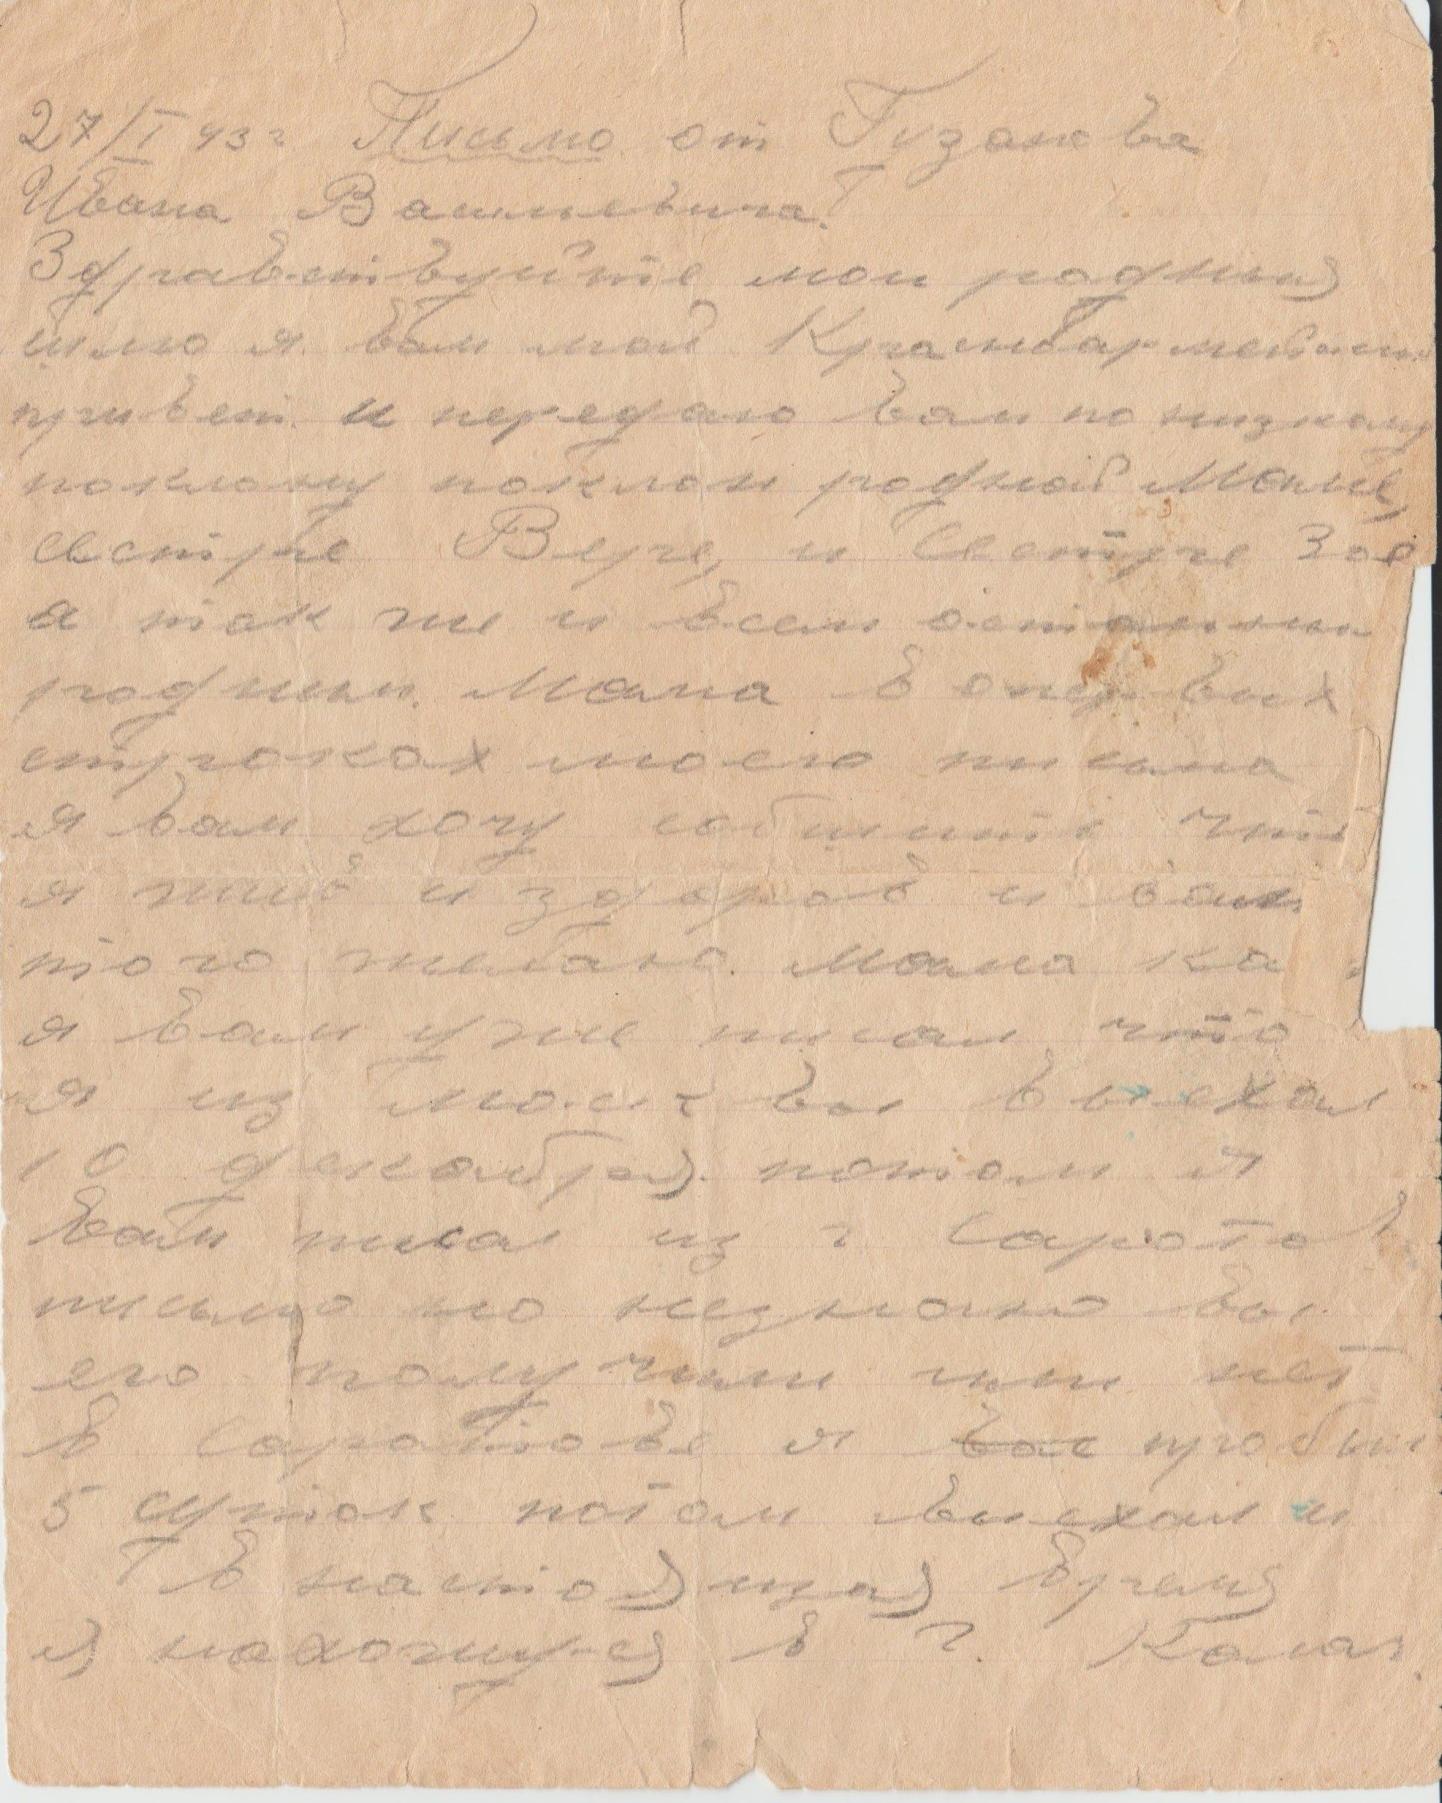 27/I 43 г Письмо от Гузанова
Ивана Васильевича.
Здравствуйте мои родныя
шлю я вам мой Красноармейский
привет и передаю вам по низкому
поклону поклон родной Маме,
сестре Вере, и Сестре Зое
а так же и всем остальным
родным. Мама в опервых
строках моего письма
я вам хочу собщить что
я жив и здоров и вам
того желаю. Мама ка
я вам уже писал что
я из Москвы выехал
10 декабря. потом я
вам писал из г Саратов
письмо но незнаю вы
его получили или нет
в Саратове я вас пробыл
5 суток потом выехал и
в настоящая время
я нахожуся в г. Калач.